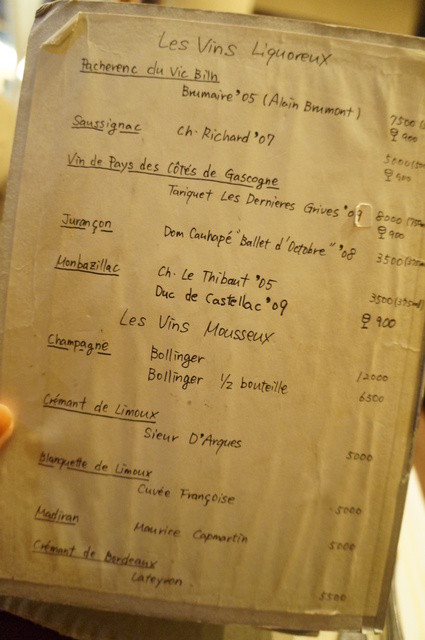 Les Vins Liquoreux
Pacherenc du Vic Bilh
Brumaire '05 (Alain Brumont) 7500
900
Saussignac
Ch. Richard '07 5000
900
Vin de Pays des Côtés de Gascogne
Tariquet Les Dernières Grives '09 8000
900
Jurançon
Dom Cauhapé "Ballet d'Octobre" '08 3500
Monbazillac
Ch. Le Thibaut '05 3500 (375ml)
Duc de Castellac '09 900
Les Vins Mousseux
Champagne
Bollinger 12000
Bollinger 1/2 bouteille 6300
Crémant de Limoux
Sieur D'Arques 5000
Blanquette de Limoux
Cuvée Françoise 5000
Madiran
Maurice Capmartin 5000
Crémant de Bordeaux
Lateyron 5500